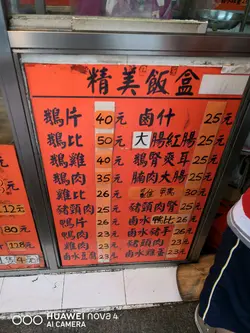 精美飯盒
鵝片 40元 鹵什 25元
鵝比 50元 大腸紅腸 25元
鵝雞 40元 鵝腎爽耳 25元
鵝肉 35元 腩肉大腸 25元
雞比 26元 雞 鴨 30元
豬頭肉 25元 豬頭肉鹵窩 25元
鴨片 25元 鹵水鴨比 26元
鴨肉 23元 鹵水豬手 25元
雞肉 23元 鹵水豬頭肉 23元
鹵水豆腐 23元 鹵水雞蛋 23元
12元
80元
128元
HUAWEI nova 4
AI CAMERA